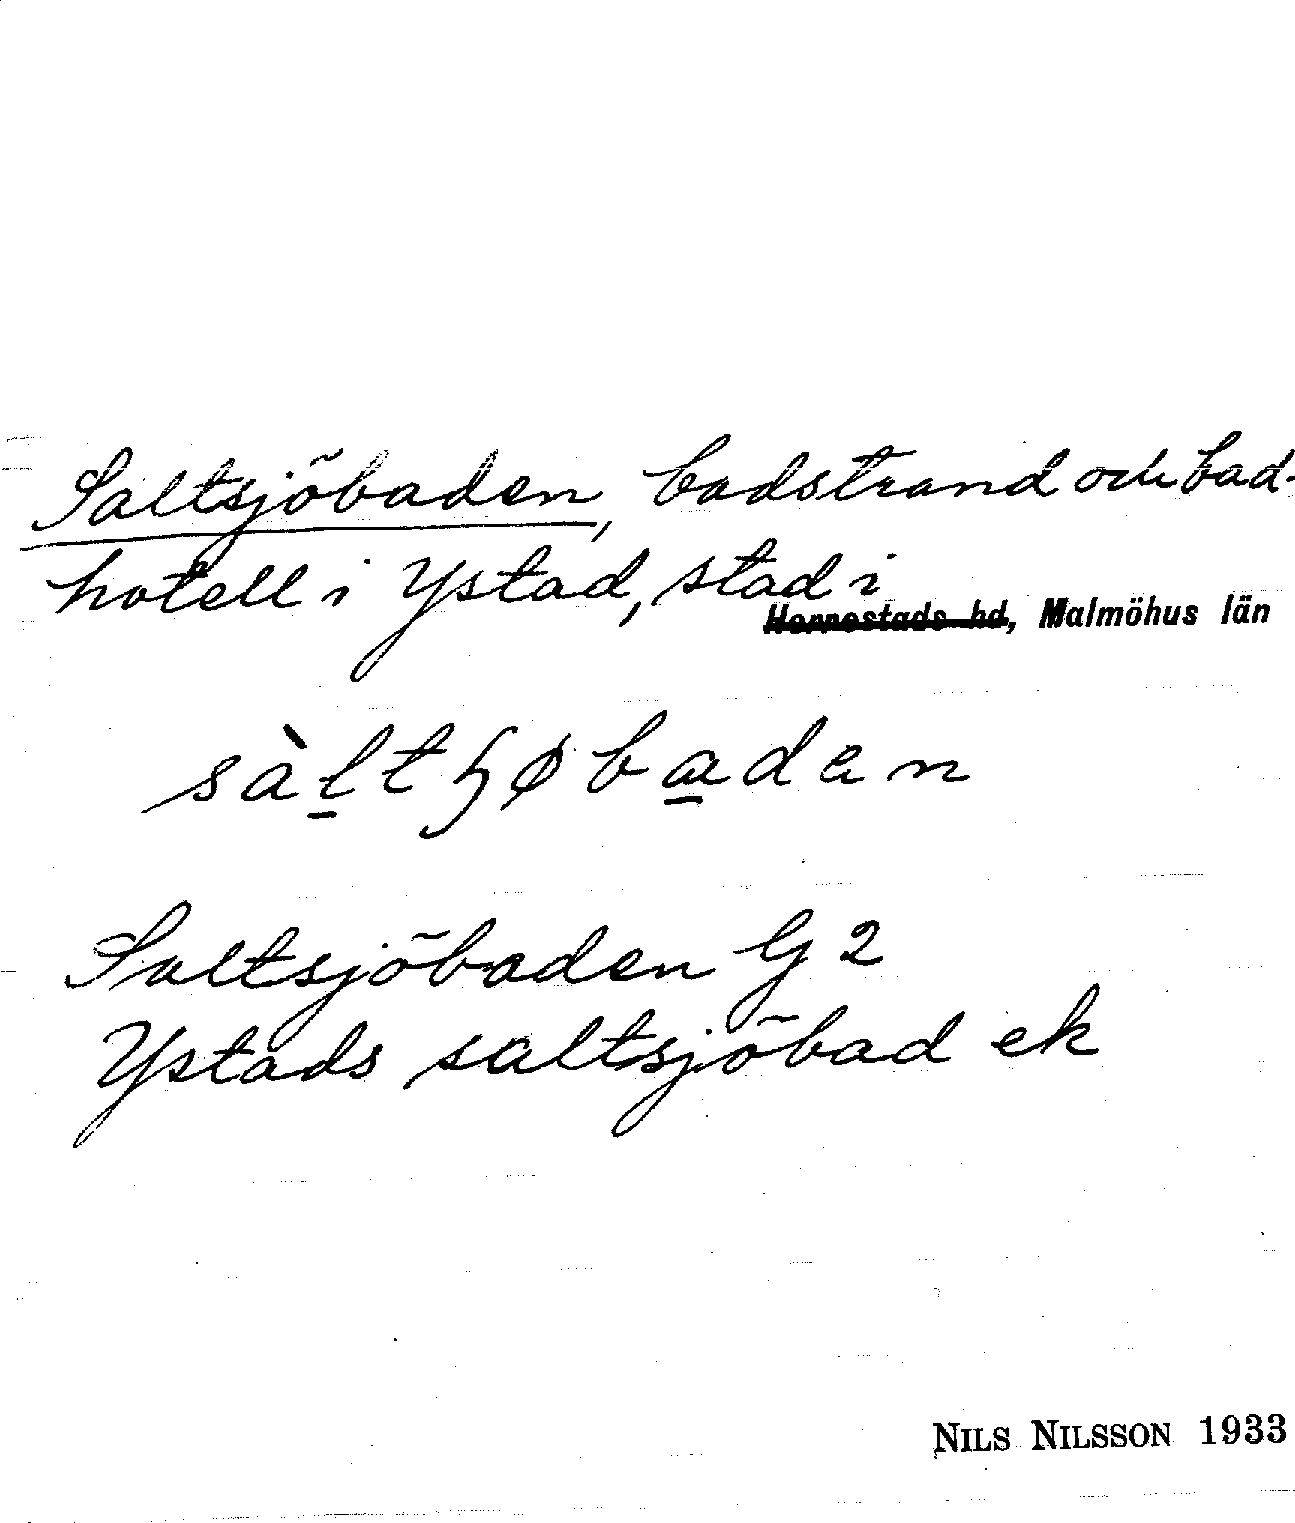 Saltsjöbaden, badstrand och bad-
hotell i Ystad, stad i
Herrestads hd, Malmöhus län
Saltsjöbaden G 2
Ystads saltsjöbad ek
NILS NILSSON 1933